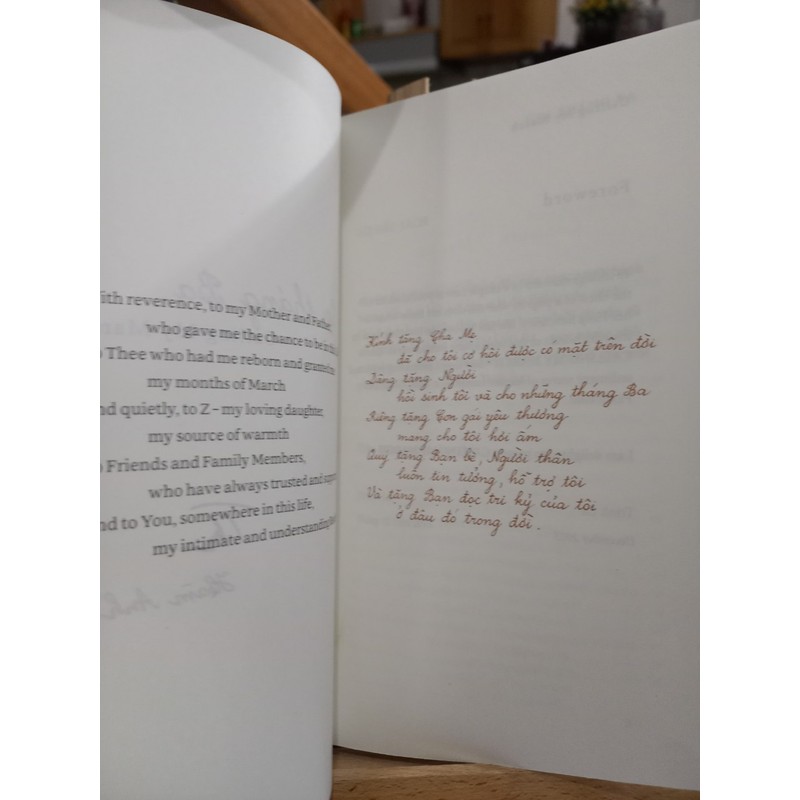 ith reverence, to my Mother and Father,
who gave me the chance to be in
Thee who had me reborn and granted
my months of March
nd quietly, to Z – my loving daughter,
my source of warmth
Friends and Family Members,
who have always trusted and
nd to You, somewhere in this life,
my intimate and understanding
Kính tặng Cha Mẹ
đã cho tôi cơ hội được có mặt trên đời
Dâng tặng Người
hồi sinh tôi và cho những tháng Ba
Riêng tặng Con gái yêu thương
mang cho tôi hơi ấm
Quý tặng Bạn bè, Người thân
luôn tin tưởng, hỗ trợ tôi
Và tặng Bạn đọc tri kỷ của tôi
ở đâu đó trong đời.
Foreword